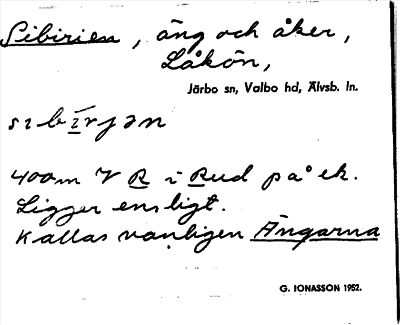 Sibirien, äng och åker,
Låkön,
Järbo sn, Valbo hd, Älvsb. ln.
sɩbɩ́rjən
400 m V R i Rud på ek.
Ligger ensligt.
Kallas vanligen Ängarna
G. IONASSON 1952.